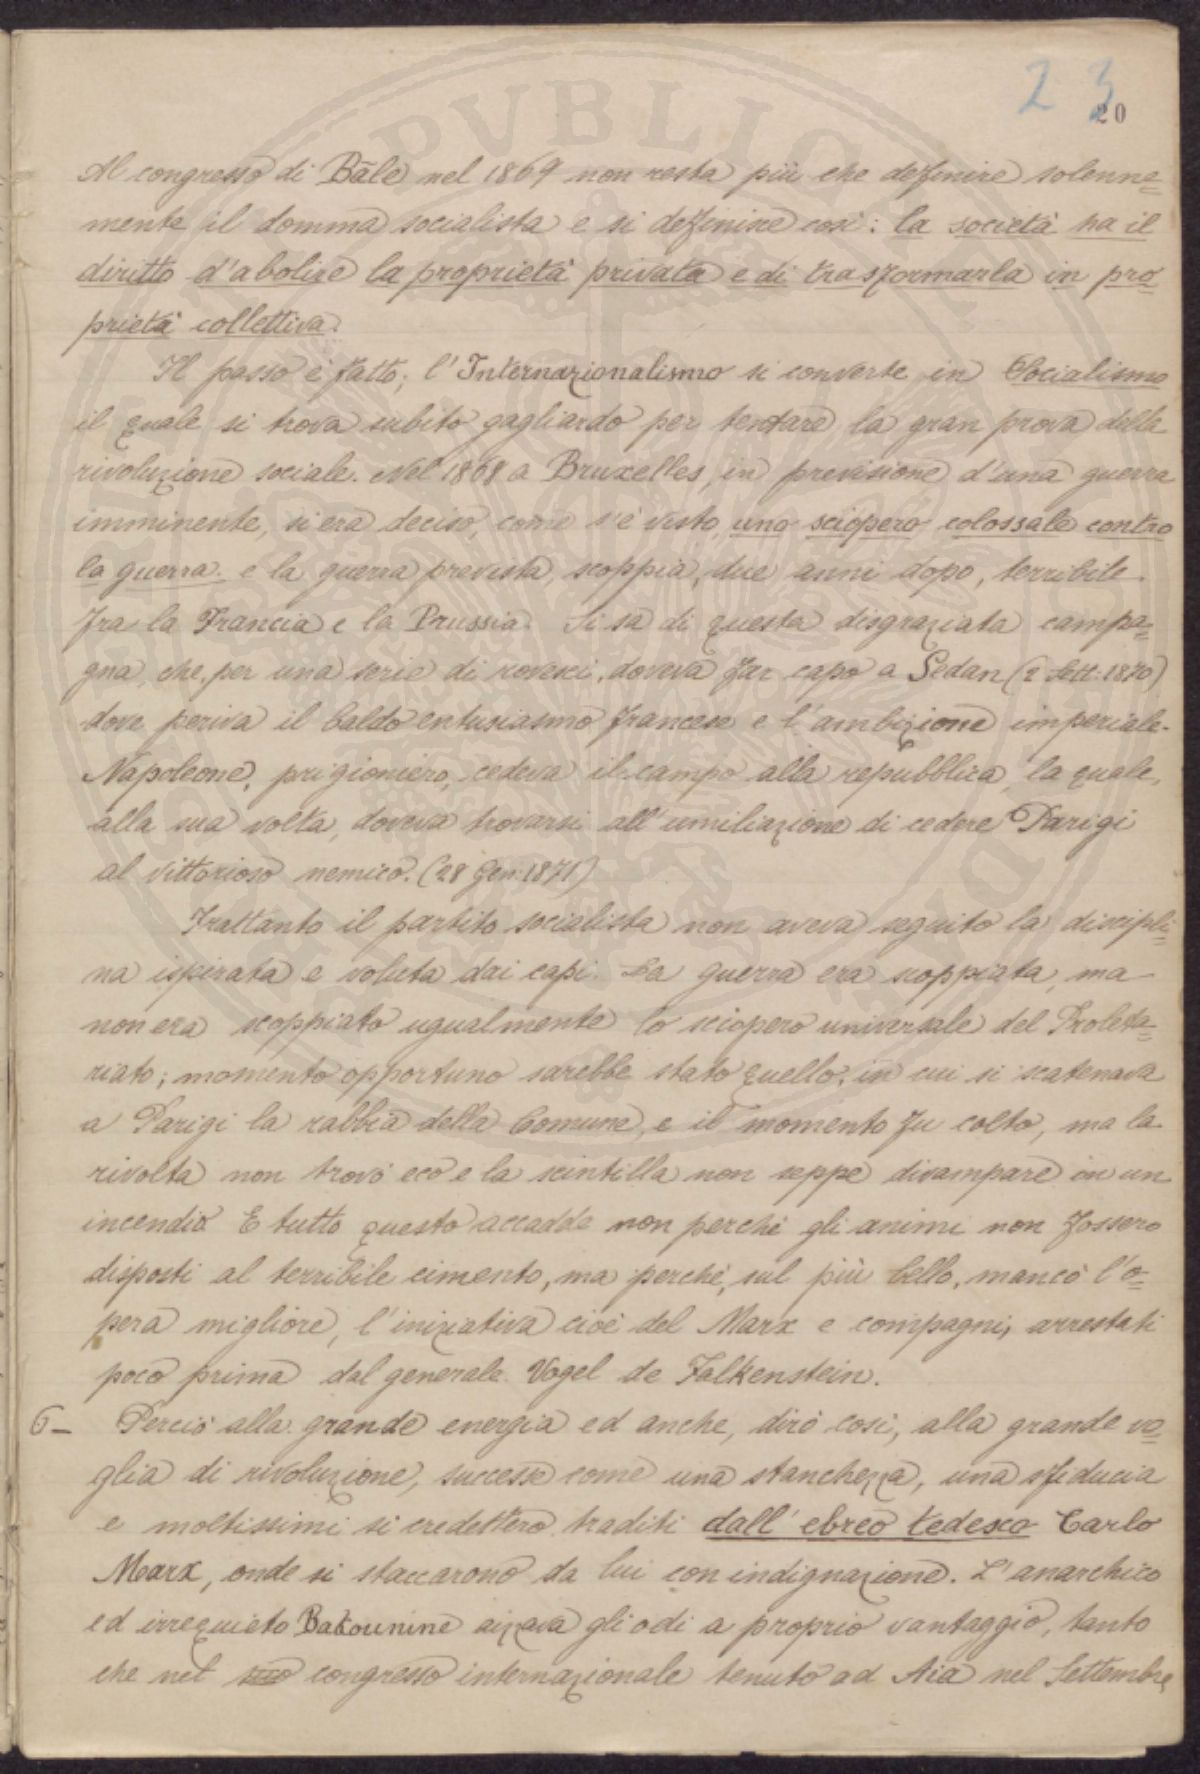 23
20
Al congresso di Bâle nel 1869 non resta più che definire solenne=
mente il domma socialista e si definisce così: la società ha il
diritto d'abolire la proprietà privata e di trasformarla in pro=
prietà collettiva.
Il passo è fatto; l'Internazionalismo si converte in Socialismo
il quale si trova subito gagliardo per tentare la gran prova della
rivoluzione sociale. Nel 1868 a Bruxelles, in previsione d'una guerra
imminente, si era deciso, come s'è visto, uno sciopero colossale contro
la guerra. e la guerra prevista, scoppia, due anni dopo, terribile.
fra la Francia e la Prussia. Si sa di questa disgraziata campa=
gna, che, per una serie di rovesci, doveva far capo a Sedan (2 Sett: 1870)
dove periva il baldo entusiasmo francese e l'ambizione imperiale.
Napoleone, prigioniero, cedeva il campo alla repubblica, la quale,
alla sua volta, doveva trovarsi all'umiliazione di cedere Parigi
al vittorioso nemico. (28 Gen: 1871)
Frattanto il partito socialista non aveva seguito la discipli=
na ispirata e voluta dai capi. La guerra era scoppiata, ma
non era scoppiato ugualmente lo sciopero universale del Proleta=
riato; momento opportuno sarebbe stato quello, in cui si scatenava
a Parigi la rabbia della Comune, e il momento fu colto, ma la
rivolta non trovò eco e la scintilla non seppe divampare in un
incendio. E tutto questo accadde non perchè gli animi non fossero
disposti al terribile cimento, ma perchè, sul più bello, mancò l'o=
pera migliore, l'iniziativa cioè del Marx e compagni, arrestati
poco prima dal generale Vogel de Falkenstein.
6- Perciò alla grande energia ed anche, dirò così, alla grande vo=
glia di rivoluzione, successe come una stanchezza, una sfiducia
e moltissimi si credettero traditi dall'ebreo tedesco Carlo
Marx, onde si staccarono da lui con indignazione. L'anarchico
ed irrequieto Bakounine aizzava gli odi a proprio vantaggio, tanto
che nel suo congresso internazionale tenuto ad Aia nel Settembre